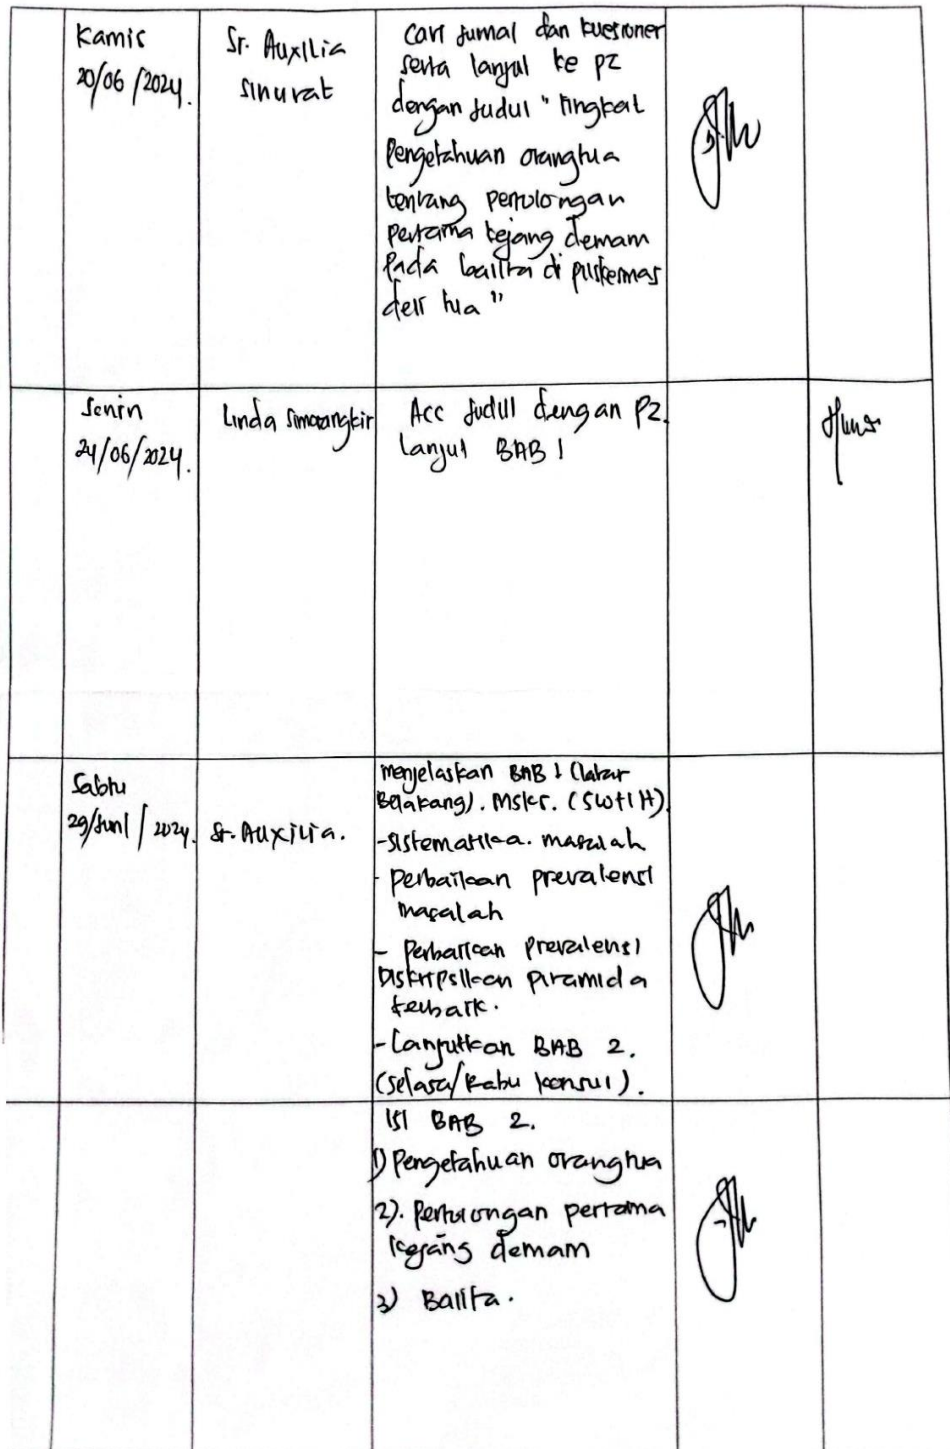 Kamis
20/06/2024.
Sr. Auxilia
Sinurat
Cari Jurnal dan kuesioner
serta lanjut ke P2
dengan Judul " Tingkat
Pengetahuan orangtua
tentang pertolongan
pertama kejang demam
Pada balita di puskesmas
deli tua "
Senin
24/06/2024.
Linda Simorangkir
Acc Judul dengan P2.
Lanjut BAB 1
Sabtu
29/Juni/2024.
Sr. Auxilia.
menjelaskan BAB 1 (Latar
Belakang). Mskr. (5W+1H).
-Sistematika. masalah
- Perbaikan prevalensi
masalah
- Perbaikan Prevalensi
Diskripsikan Piramida
terbaik.
-Lanjutkan BAB 2.
(Selasa/Rabu konsul).
ISI BAB 2.
1) Pengetahuan orangtua
2). Pertolongan pertama
kejang demam
3) Balita.